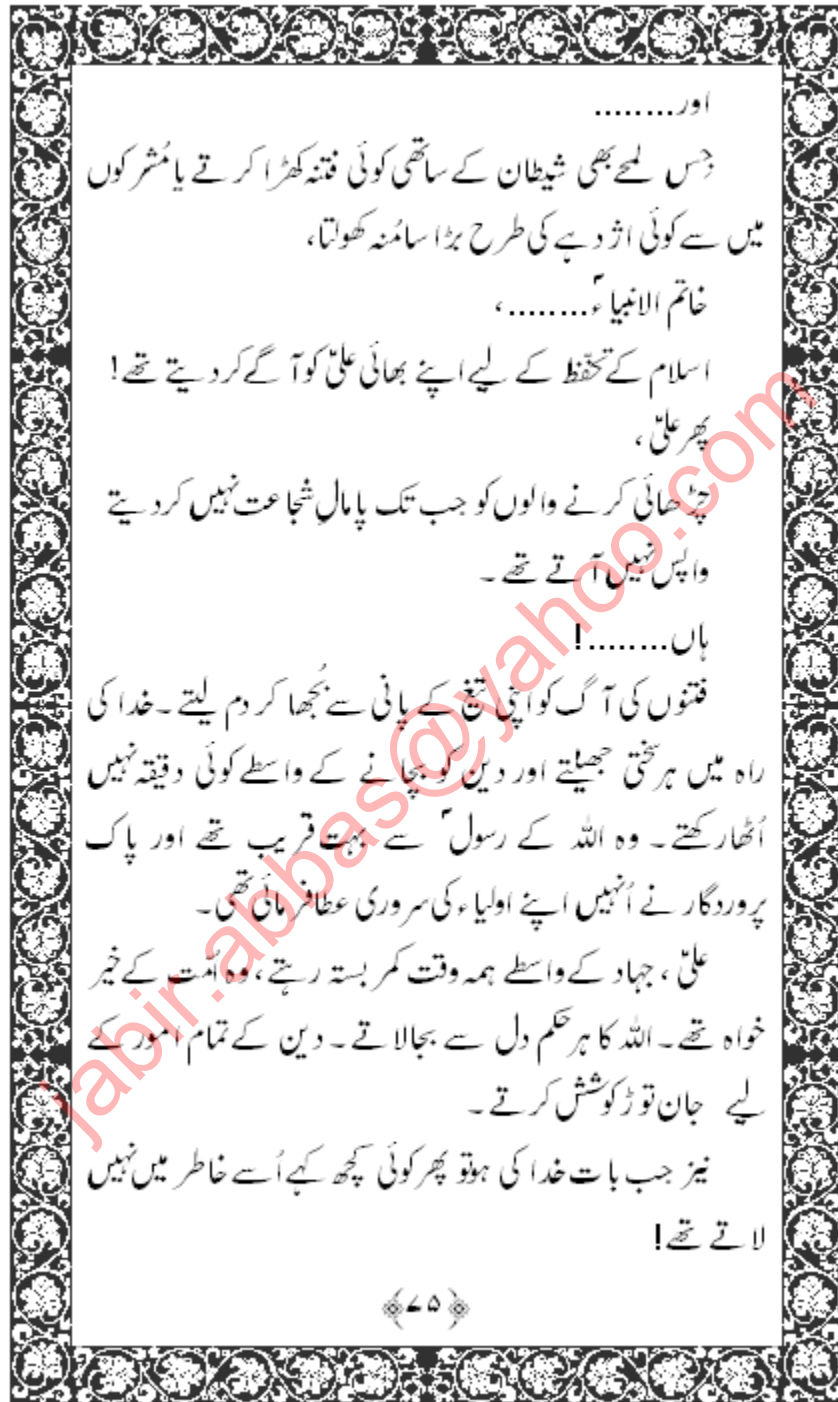 اور.........
جِس لمحے بھی شیطان کے ساتھی کوئی فتنہ کھڑا کرتے یا مُشرکوں
میں سے کوئی اژدہے کی طرح بڑا سا مُنہ کھولتا،
خاتم الانبیاءؐ.........،
اسلام کے تحفّظ کے لیے اپنے بھائی علیؑ کو آگے کر دیتے تھے!
پھر علیؑ ،
چڑھائی کرنے والوں کو جب تک پامالِ شجاعت نہیں کر دیتے
واپس نہیں آتے تھے۔
ہاں.........!
فتنوں کی آگ کو اپنی تیغ کے پانی سے بُجھا کر دم لیتے۔ خدا کی
راہ میں ہر سختی جھیلتے اور دین کو بچانے کے واسطے کوئی دقیقہ نہیں
اُٹھا رکھتے۔ وہ اللہ کے رسولؐ سے بہت قریب تھے اور پاک
پروردگار نے اُنہیں اپنے اولیاء کی سروری عطا فرمائی تھی۔
علیؑ ، جہاد کے واسطے ہمہ وقت کمر بستہ رہتے ، وہ اُمت کے خیر
خواہ تھے۔ اللہ کا ہر حکم دل سے بجا لاتے۔ دین کے تمام امور کے
لیے جان توڑ کوشش کرتے۔
نیز جب بات خدا کی ہوتو پھر کوئی کچھ کہے اُسے خاطر میں نہیں
لاتے تھے!
﴿۷۵﴾
jabir.abbas@yahoo.com